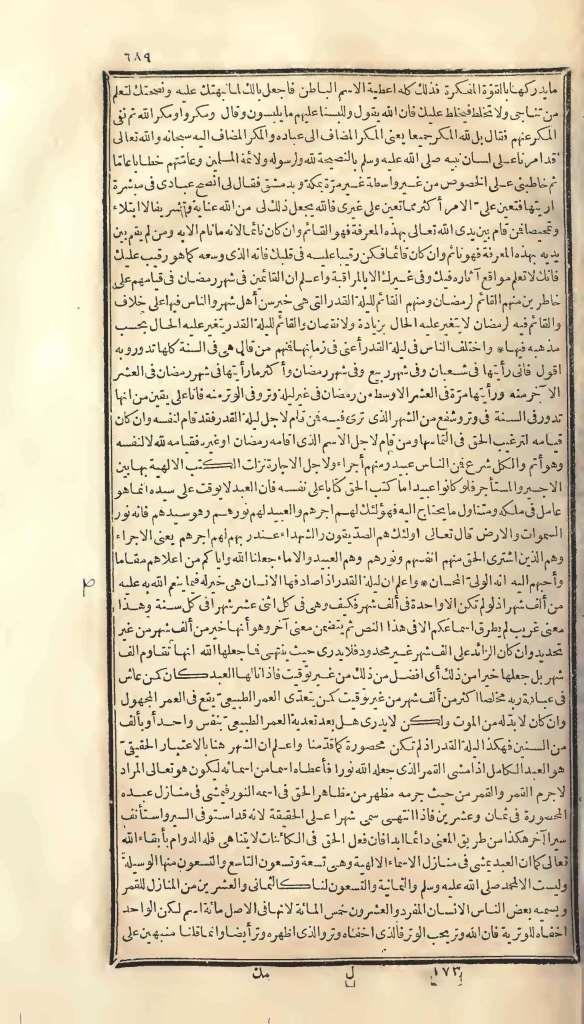 ٦٨٩
ما يدركها بالقوّة المفكرة فذلك كله اعطية الاسم الباطن فاجعل بالك لما نبهتك عليه ونصحتك لتعلم
من تناجى ولا تخلط فيخلط عليك فان الله يقول وللبسنا عليهم ما يلبسون وقال ومكروا ومكر الله ثم نفى
المكر عنهم فقال بل لله المكر جميعا يعنى المكر المضاف الى عباده والمكر المضاف اليه سبحانه والله تعالى
قد امرنا على لسان نبيه صلى الله عليه وسلم بالنصيحة لله ولرسوله ولائمة المسلمين وعامّتهم خطابا عامّا
ثم خاطبنى على الخصوص من غير واسطة غير مرّة بمكة وبدمشق فقال لى انصح عبادى فى مبشرة
اريتها فتعين علىّ الامر أكثر مما تعين على غيرى فالله يجعل ذلك لى من الله عناية وتشريفا لا ابتلاء
وتمحيصا فمن قام بين يدى الله تعالى بهذه المعرفة فهو القائم وان كان نائما لانه ما نام الا به ومن لم يقم بين
يديه بهذه المعرفة فهو نائم وان كان قائما فكن رقيبا عليه فى قلبك فانه الذى وسعه كما هو رقيب عليك
فانك لا تعلم مواقع آثاره فيك وفى غيرك الا بالمراقبة واعلم ان القائمين فى شهر رمضان فى قيامهم على
خاطرين منهم القائم لرمضان ومنهم القائم لليلة القدر التى هى خير من ألف شهر والناس فيها على خلاف
والقائم فيه لرمضان لا يتغير عليه الحال بزيادة ولا نقصان والقائم لليلة القدر يتغير عليه الحال بحسب
مذهبه فيها * واختلف الناس فى ليلة القدر أعنى فى زمانها فمنهم من قال هى فى السنة كلها تدور وبه
اقول فانى رأيتها فى شعبان وفى شهر ربيع وفى شهر رمضان وأكثر ما رأيتها فى شهر رمضان فى العشر
الآخر منه ورأيتها مرّة فى العشر الاوسط من رمضان فى غير ليلة وتر وفى الوتر منه فانا على يقين من انها
تدور فى السنة فى وتر وشفع من الشهر الذى ترى فيه فمن قام لاجل ليلة القدر فقد قام لنفسه وان كان
قيامه لترغيب الحق فى التماسها ومن قام لاجل الاسم الذى اقامه رمضان او غيره فقيامه لله لا لنفسه
وهو أتم والكل شرع فمن الناس عبيد ومنهم أجراء ولاجل الاجارة نزلت الكتب الالهية بها بين
الاجير والمستأجر فلو كانوا عبيدا ما كتب الحق كتابا على نفسه فان العبد لا يوقت على سيده انما هو
عامل فى ملكه ومتناول ما يحتاج اليه فهؤلئك لهم اجرهم والعبيد لهم نورهم وهو سيدهم فانه نور
السموات والارض قال تعالى اولئك هم الصدّيقون والشهداء عند ربهم لهم اجرهم يعنى الاجراء
وهم الذين اشترى الحق منهم انفسهم ونورهم وهم العبيد والاماء جعلنا الله واياكم من اعلاهم مقاما
وأحبهم اليه انه الولىّ المحسان * واعلم ان ليلة القدر اذا صادفها الانسان هى خير له فيما ينعم الله به عليه
من ألف شهر اذ لو لم تكن الا واحدة فى ألف شهر فكيف وهى فى كل اثنى عشر شهرا فى كل سنة وهذا
معنى غريب لم يطرق اسماعكم الا فى هذا النص ثم يتضمن معنى آخر وهو أنها خير من ألف شهر من غير
تحديد وان كان الزائد على الف شهر غير محدود فلا يدرى حيث ينتهى فما جعلها الله انها تقاوم الف
شهر بل جعلها خيرا من ذلك أى افضل من ذلك من غير توقيت فاذا نالها العبد كان كمن عاش
فى عبادة ربه مخلصا اكثر من ألف شهر من غير توقيت كمن يتعدّى العمر الطبيعىّ يقع فى العمر المجهول
وان كان لا بدّ له من الموت ولكن لا يدرى هل بعد تعديه العمر الطبيعىّ بنفس واحد أو بألاف
من السنين فهكذا ليلة القدر اذ لم تكن محصورة كما قدّمنا واعلم ان الشهر هنا بالاعتبار الحقيقىّ
هو العبد الكامل اذا مشى القمر الذى جعله الله نورا فأعطاه اسما من اسمائه ليكون هو تعالى المراد
لا جرم القمر والقمر من حيث جرمه مظهر من مظاهر الحق فى اسمه النور فيمشى فى منازل عبده
المحصورة فى ثمان وعشرين فاذا انتهى سمى شهرا على الحقيقة لانه قد استوفى السير واستأنف
سيرا آخر هكذا من طريق المعنى دائما ابدا فان فعل الحق فى الكائنات لا يتناهى فله الدوام بأبقاء الله
تعالى كما ان العبد يمشى فى منازل الاسماء الالهية وهى تسعة وتسعون التاسع والتسعون منها الوسيلة
وليست الا لمحمد صلى الله عليه وسلم والثمانية والتسعون لنا كالثمانى والعشرين من المنازل للقمر
ويسميه بعض الناس الانسان المفرد والعشرون خمس المائة لانها فى الاصل مائة اسم لكن الواحد
اخفاه للوترية فان الله وتر يحب الوتر فالذى اخفاه وتر والذى اظهره وتر أيضا وانما قلنا منبهين على
١٧٣ ل مك